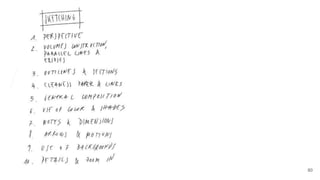 SKETCHING
1. PERSPECTIVE
2. VOLUMES CONSTRUCTION,
PARALLEL LINES &
ELLIPSES
3. OUTLINES & SECTIONS
4. CLEANESS PAPER & LINES
5. GENERAL COMPOSITION
6. USE OF COLOR & SHADES
7. NOTES & DIMENSIONS
8. ARROWS & MOTIONS
9. USE OF BACKGROUNDS
10. DETAILS & ZOOM IN